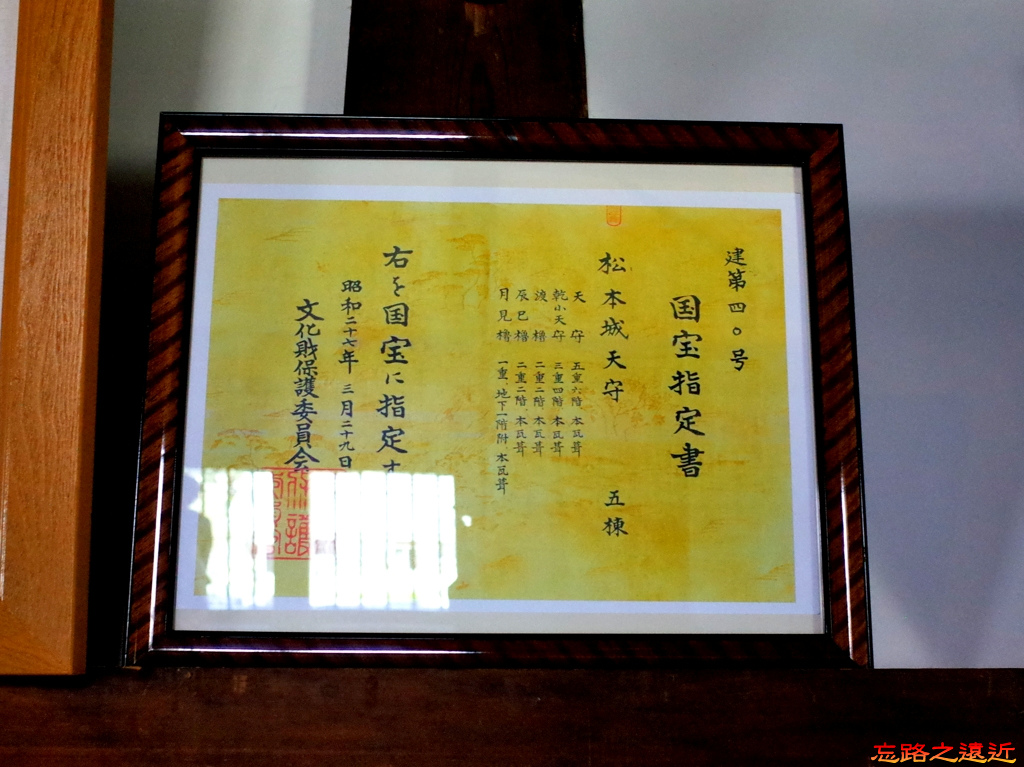 建第四〇号
国宝指定書
松本城天守 五棟
天守 五重六階、本瓦葺
乾小天守 三重四階、本瓦葺
渡櫓 二重二階、本瓦葺
辰巳櫓 二重二階、本瓦葺
月見櫓 一重、地下一階附、本瓦葺
右を国宝に指定す
昭和二十七年三月二十九日
文化財保護委員会
忘路之遠近